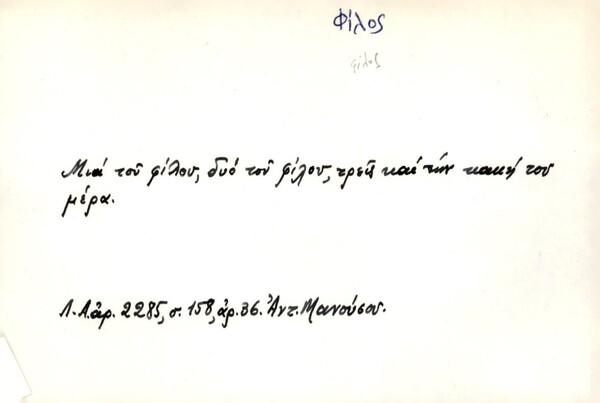 Φίλος
φίλος
Μιά τοῦ φίλου, δυό τοῦ φίλου, τρεῖς καί τήν κακή του
μέρα.
Λ.Α. ἀρ. 2285, σ. 158, ἀρ. 36. Ἀντ. Μανούσου.